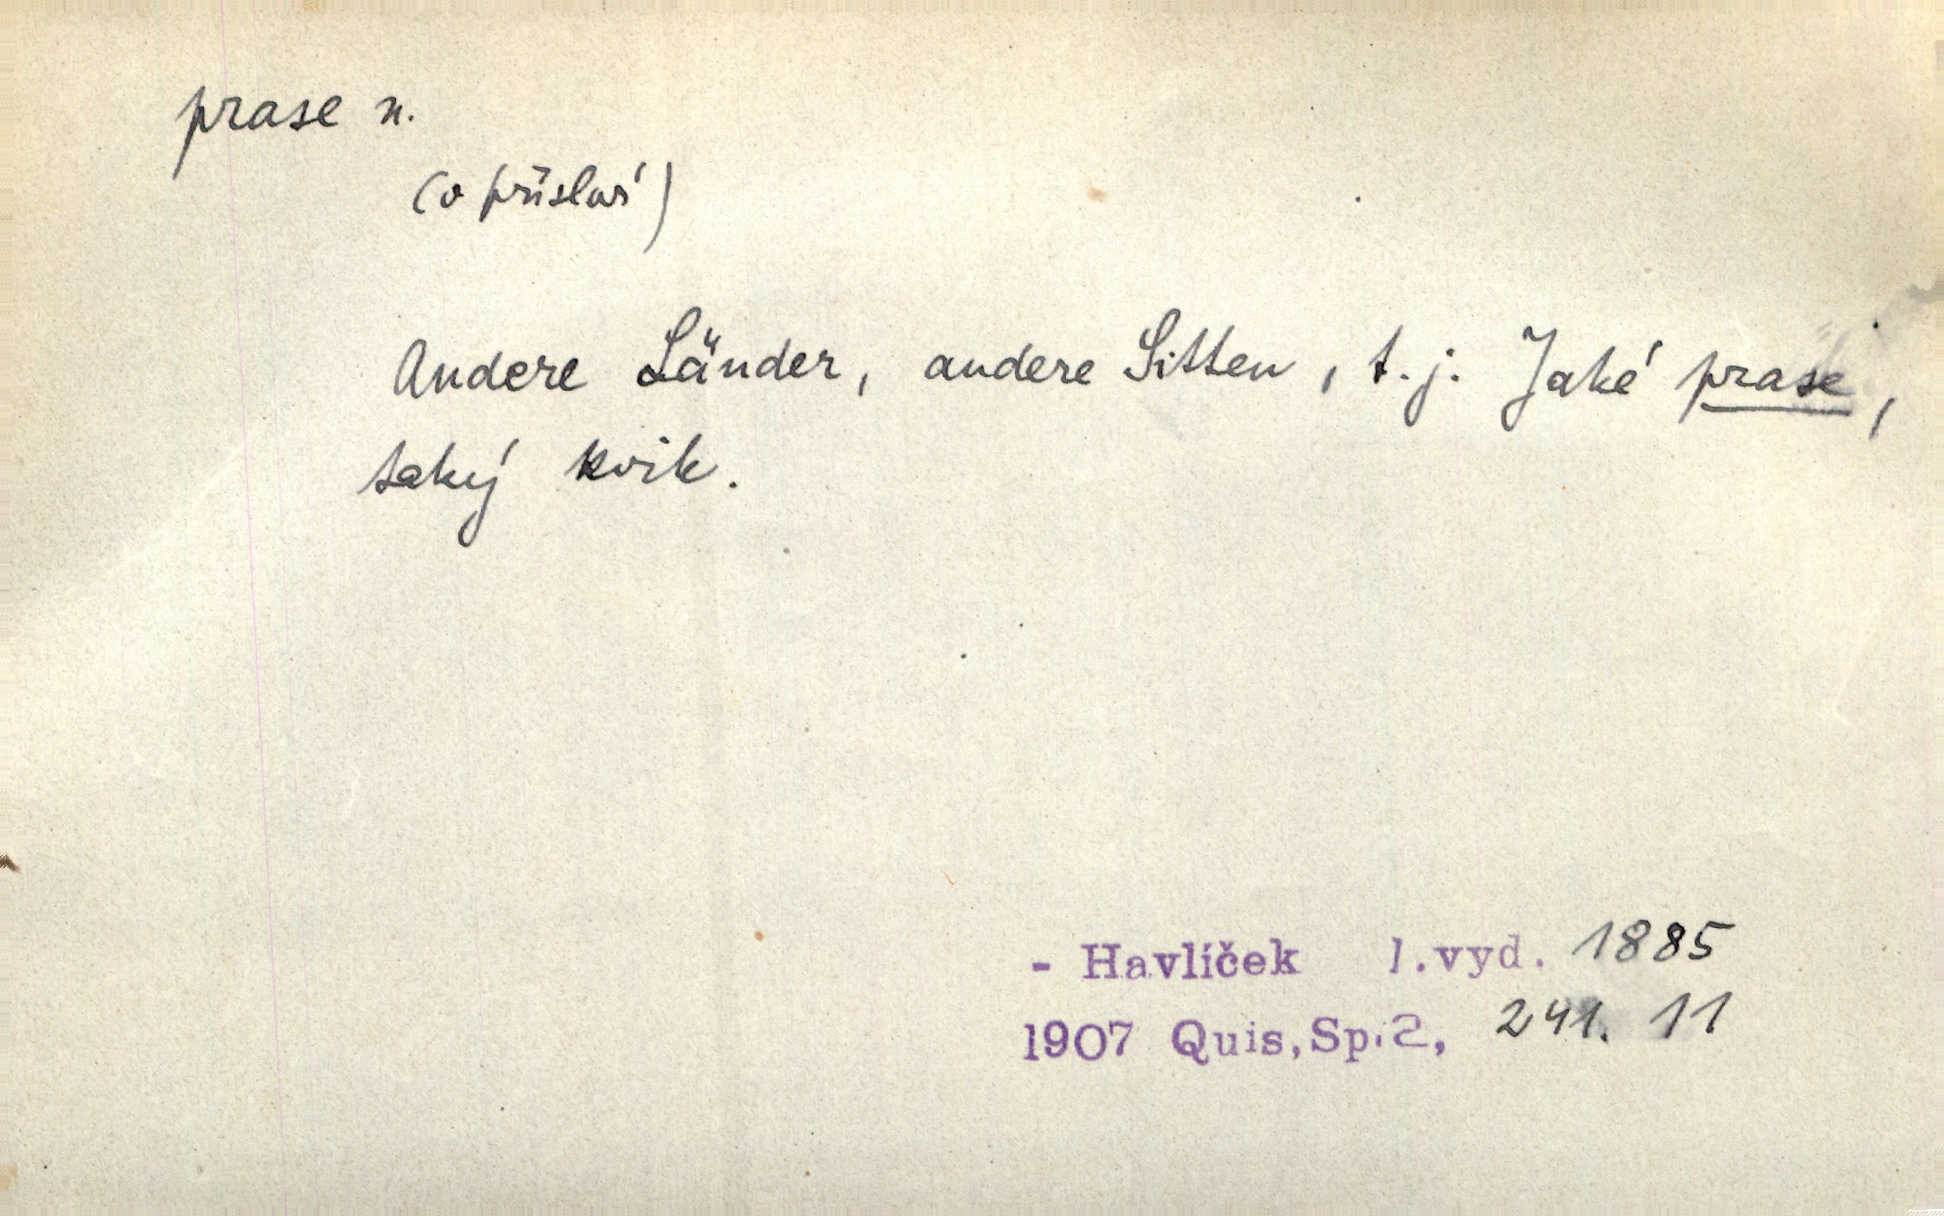 prase n.
(v přísloví)
Andere Länder, andere Sitten, t.j. Jaké prase,
taký kvik.
- Havlíček 1.vyd. 1885
1907 Quis,Sp.2, 241. 11